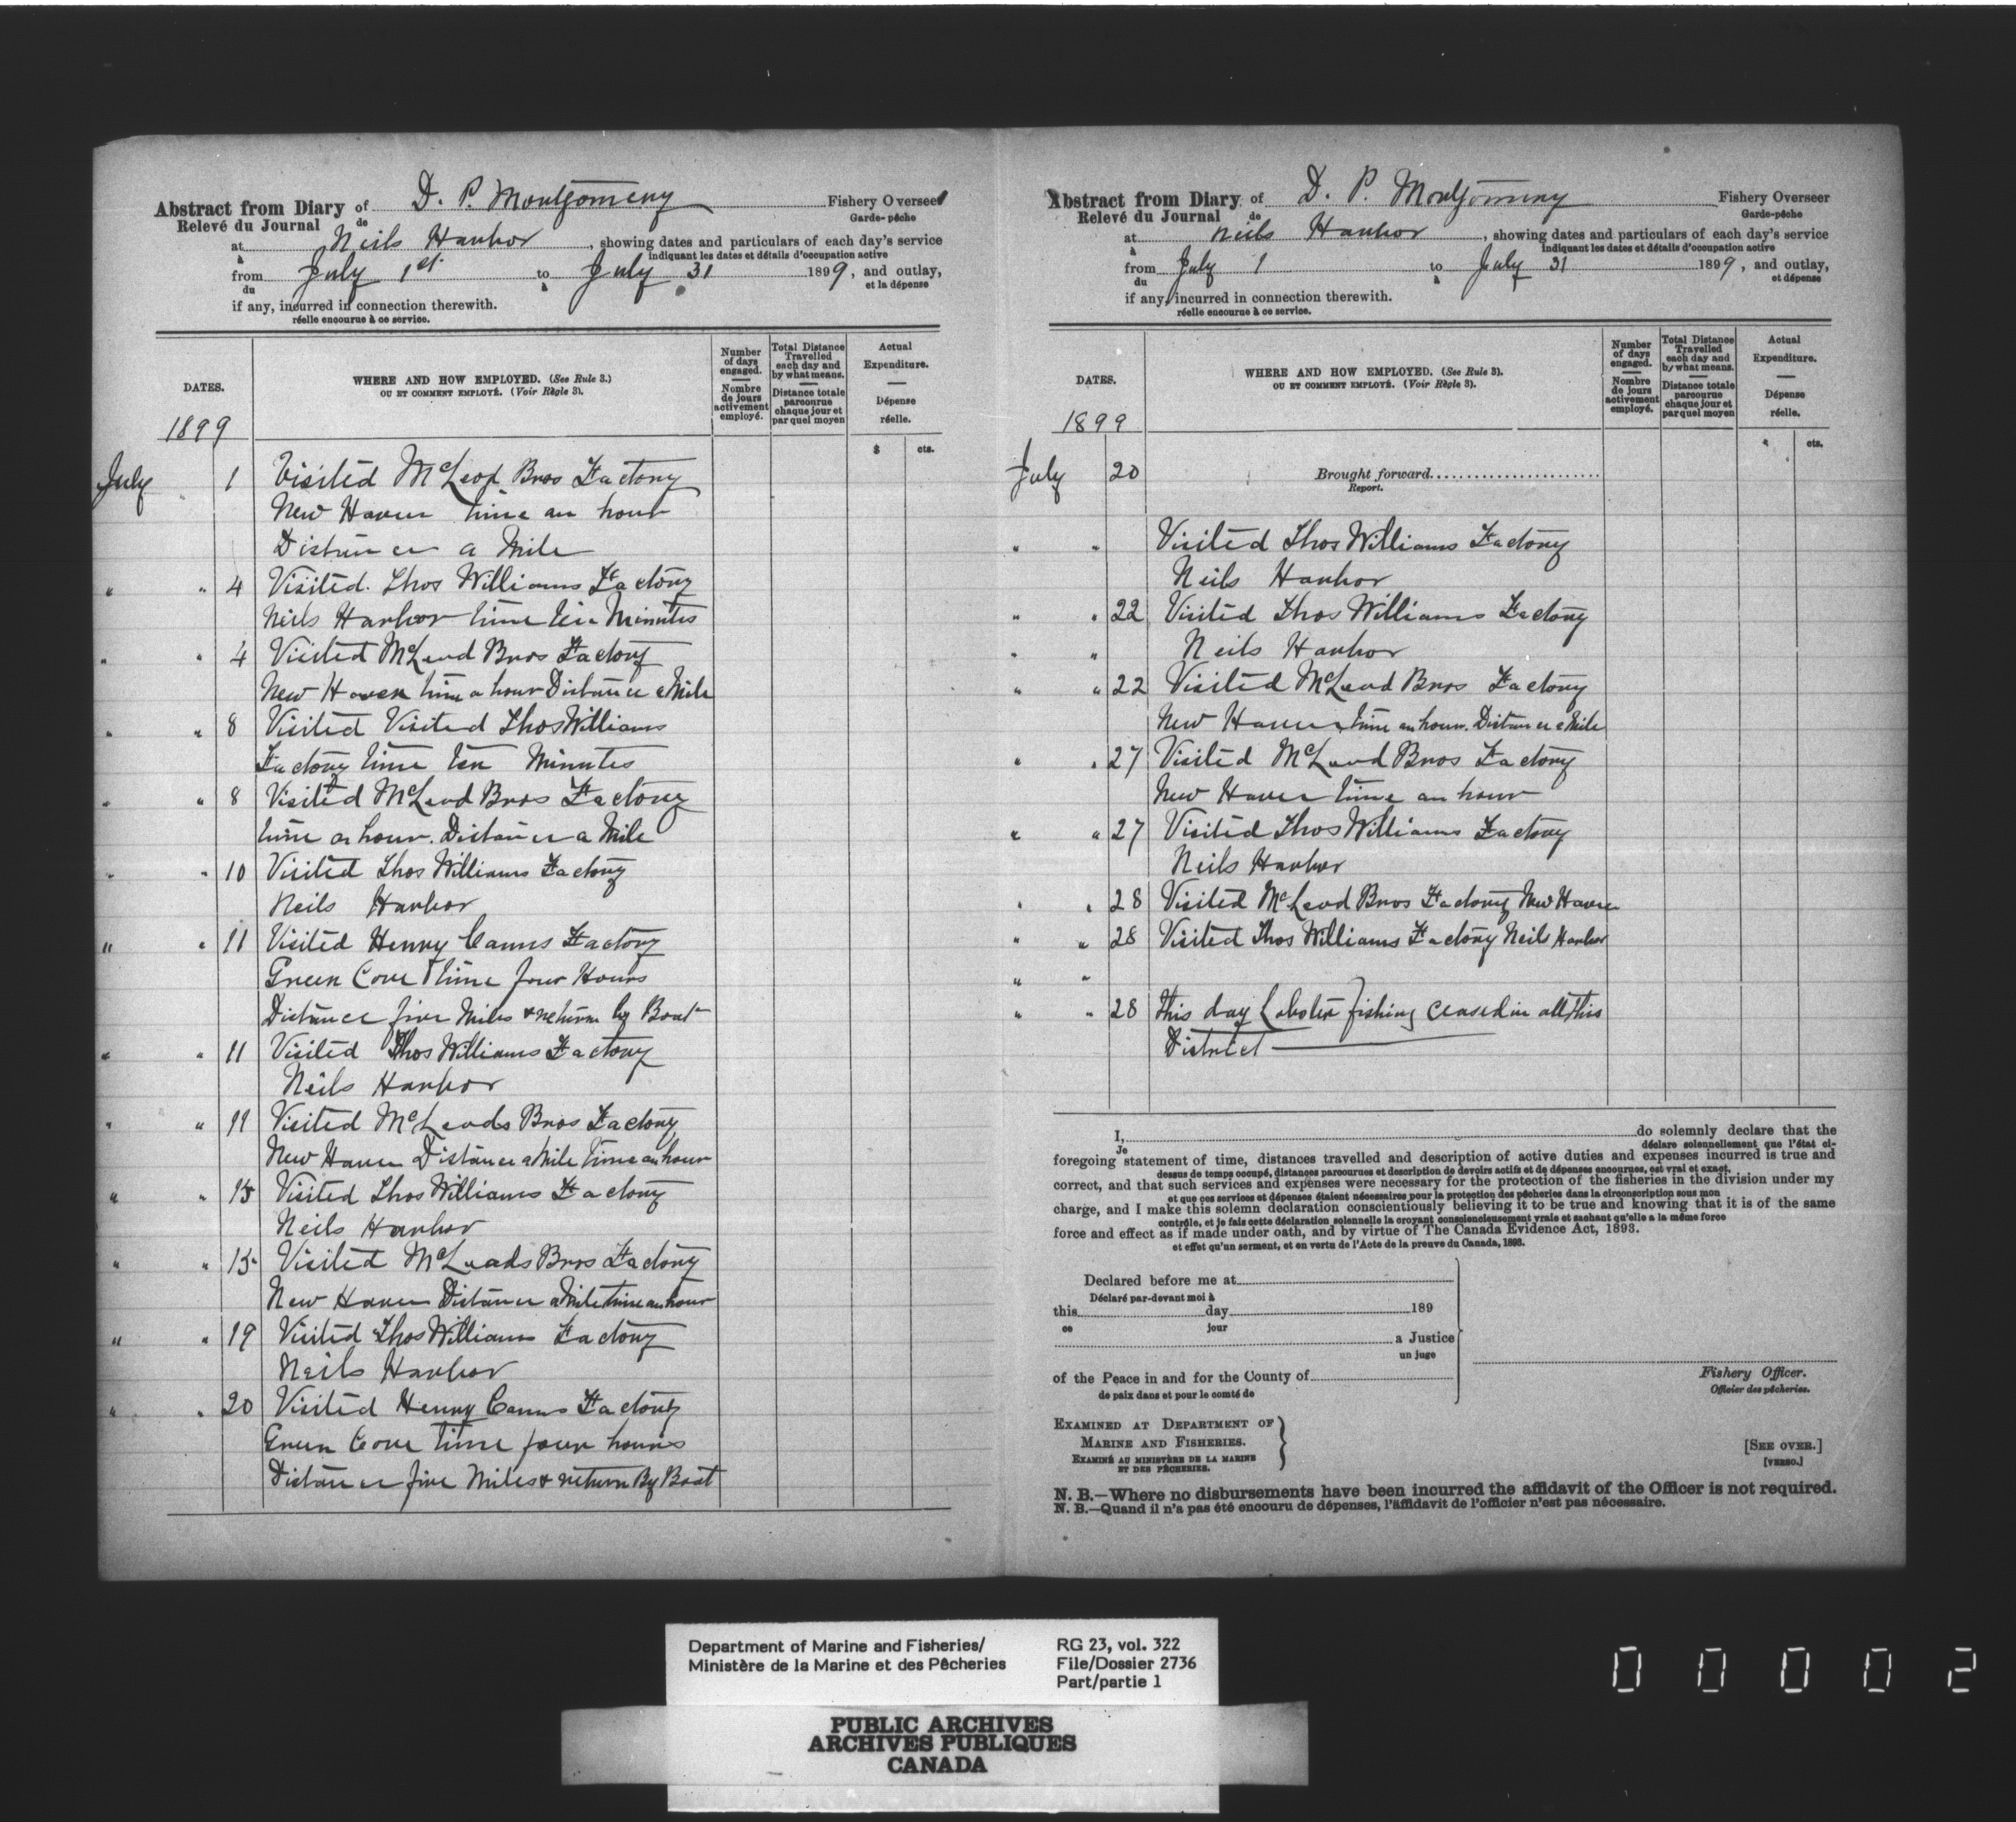 Abstract from Diary of D. P. Montgomery Fishery Overseer
Relevé du Journal de Garde-pêche
at Neils Harbor, showing dates and particulars of each day's service
à indiquant les dates et détails d'occupation active
from July 1st to July 31 1899, and outlay,
du à et la dépense
if any, incurred in connection therewith.
réelle encourue à ce service.
DATES.
WHERE AND HOW EMPLOYED. (See Rule 3.)
OU ET COMMENT EMPLOYÉ. (Voir Règle 3).
Number of days engaged.
Nombre de jours activement employé.
Total Distance Travelled each day and by what means.
Distance totale parcourue chaque jour et par quel moyen
Actual Expenditure.
Dépense réelle.
1899
$ cts.
July 1 Visited McLeod Bros Factory
New Haven time an hour
Distance a Mile
" " 4 Visited. Thos Williams Factory
Neils Harbor time ten Minutes
" " 4 Visited McLeod Bros Factory
New Haven time a hour Distance a Mile
" " 8 Visited Visited Thos Williams
Factory time ten Minutes
" " 8 Visited McLeod Bros Factory
time an hour. Distance a Mile
" " 10 Visited Thos Williams Factory
Neils Harbor
" " 11 Visited Henry Canns Factory
Green Cove time four Hours
Distance five Miles & return by Boat
" " 11 Visited Thos Williams Factory
Neils Harbor
" " 11 Visited McLeods Bros Factory
New Haven Distance a Mile time an hour
" " 15 Visited Thos Williams Factory
Neils Harbor
" " 15 Visited McLeods Bros Factory
New Haven Distance a Mile time an hour
" " 19 Visited Thos Williams Factory
Neils Harbor
" " 20 Visited Henry Canns Factory
Green Cove time four hours
Distance five Miles & return By Boat
Abstract from Diary of D. P. Montgomery Fishery Overseer
Relevé du Journal de Garde-pêche
at Neils Harbor, showing dates and particulars of each day's service
à indiquant les dates et détails d'occupation active
from July 1 to July 31 1899, and outlay,
du à et dépense
if any, incurred in connection therewith.
réelle encourue à ce service.
DATES.
WHERE AND HOW EMPLOYED. (See Rule 3).
OU ET COMMENT EMPLOYÉ. (Voir Règle 3).
Number of days engaged.
Nombre de jours activement employé.
Total Distance Travelled each day and by what means.
Distance totale parcourue chaque jour et par quel moyen
Actual Expenditure.
Dépense réelle.
1899
cts.
July 20 Brought forward
Report.
" " Visited Thos Williams Factory
Neils Harbor
" " 22 Visited Thos Williams Factory
" " Neils Harbor
" " 22 Visited McLeod Bros Factory
New Haven time an hour. Distance a Mile
" " 27 Visited McLeod Bros Factory
New Haven time an hour
" " 27 Visited Thos Williams Factory
Neils Harbor
" " 28 Visited McLeod Bros Factory New Haven
" " 28 Visited Thos Williams Factory Neils Harbor
" "
" " 28 This day Lobster fishing ceased in all this
District
I, do solemnly declare that the
Je déclare solennellement que l'état ci-
foregoing statement of time, distances travelled and description of active duties and expenses incurred is true and
dessus de temps occupé, distances parcourues et description de devoirs actifs et de dépenses encourues, est vrai et exact,
correct, and that such services and expenses were necessary for the protection of the fisheries in the division under my
et que ces services et dépenses étaient nécessaires pour la protection des pêcheries dans la circonscription sous mon
charge, and I make this solemn declaration conscientiously believing it to be true and knowing that it is of the same
contrôle, et je fais cette déclaration solennelle la croyant consciencieusement vraie et sachant qu'elle a la même force
force and effect as if made under oath, and by virtue of The Canada Evidence Act, 1893.
et effet qu'un serment, et en vertu de l'Acte de la preuve du Canada, 1893.
Declared before me at
Déclaré par-devant moi à
this day 189
ce jour
a Justice
un juge
of the Peace in and for the County of
de paix dans et pour le comté de
Fishery Officer.
Officier des pêcheries.
EXAMINED AT DEPARTMENT OF
MARINE AND FISHERIES.
EXAMINÉ AU MINISTÈRE DE LA MARINE
ET DES PÊCHERIES.
[SEE OVER.]
[VERSO.]
N. B.—Where no disbursements have been incurred the affidavit of the Officer is not required.
N. B.—Quand il n'a pas été encouru de dépenses, l'affidavit de l'officier n'est pas nécessaire.
Department of Marine and Fisheries/
Ministère de la Marine et des Pêcheries
RG 23, vol. 322
File/Dossier 2736
Part/partie 1
00002
PUBLIC ARCHIVES
ARCHIVES PUBLIQUES
CANADA